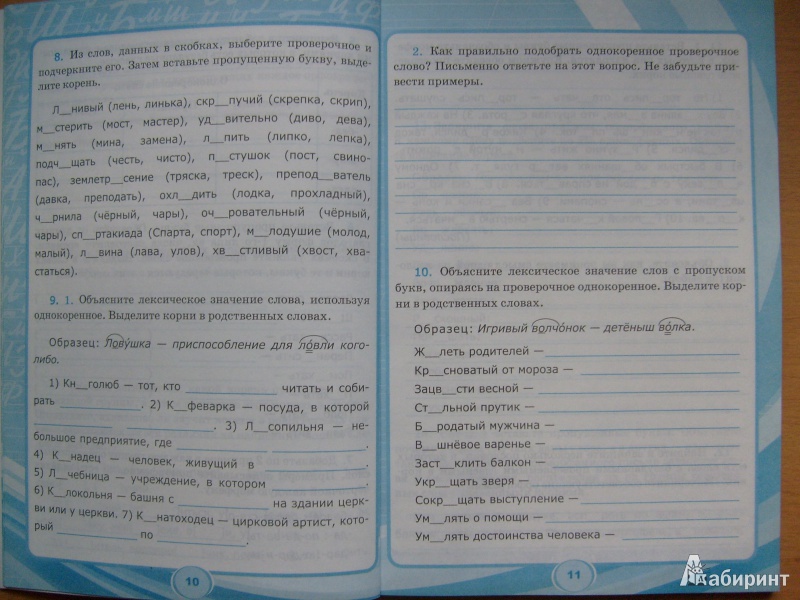 8. Из слов, данных в скобках, выберите проверочное и
подчеркните его. Затем вставьте пропущенную букву, выде-
лите корень.
Л__нивый (лень, линька), скр__пучий (скрепка, скрип),
м__стерить (мост, мастер), уд__вительно (диво, дева),
м__нять (мина, замена), л__пить (липко, лепка),
подч__щать (честь, чисто), п__стушок (пост, свино-
пас), землетр__сение (тряска, треск), препод__ватель
(давка, преподать), охл__дить (лодка, прохладный),
ч__рнила (чёрный, чары), оч__ровательный (чёрный,
чары), сп__ртакиада (Спарта, спорт), м__лодушие (молод,
малый), л__вина (лава, улов), хв__стливый (хвост, хва-
статься).
9. 1. Объясните лексическое значение слова, используя
однокоренное. Выделите корни в родственных словах.
Образец: Лову́шка — приспособление для ло́вли кого-
либо.
1) Кн__голюб — тот, кто ____________ читать и соби-
рать ____________. 2) К__феварка — посуда, в которой
____________ ____________. 3) Л__сопильня — не-
большое предприятие, где ____________ ____________.
4) К__надец — человек, живущий в ____________.
5) Л__чебница — учреждение, в котором ____________.
6) К__локольня — башня с ____________ на здании церк-
ви или у церкви. 7) К__натоходец — цирковой артист, кото-
рый ____________ по ____________.
10
2. Как правильно подобрать однокоренное проверочное
слово? Письменно ответьте на этот вопрос. Не забудьте при-
вести примеры.
10. Объясните лексическое значение слов с пропуском
букв, опираясь на проверочное однокоренное. Выделите кор-
ни в родственных словах.
Образец: Игривый волчо́нок — детёныш во́лка.
Ж__леть родителей —
Кр__сноватый от мороза —
Зацв__сти весной —
Ст__льной прутик —
Б__родатый мужчина —
В__шнёвое варенье —
Заст__клить балкон —
Укр__щать зверя —
Сокр__щать выступление —
Ум__лять о помощи —
Ум__лять достоинства человека —
11
Лабиринт